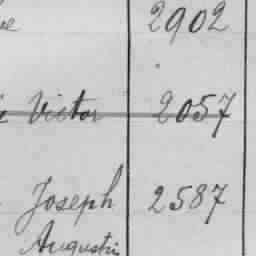 2902
Victor 2057
Joseph 2587
Augustin